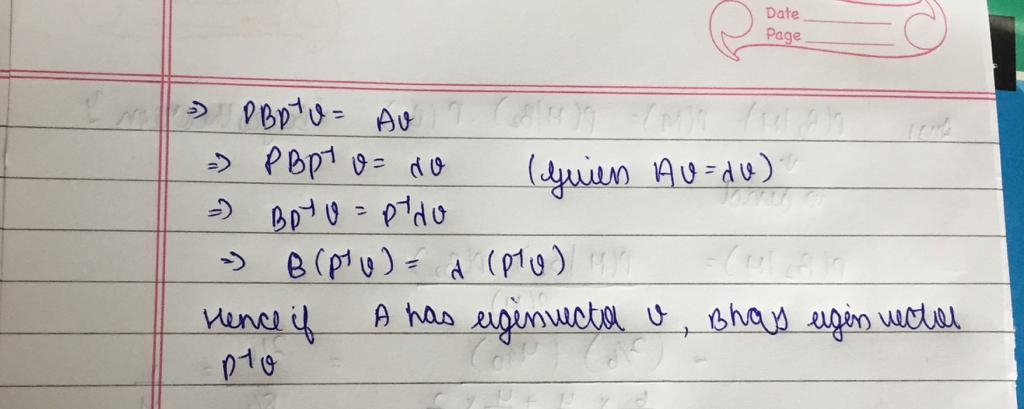 Date
Page
⇒ PBP⁻¹v = Av
⇒ PBP⁻¹ v = λv (Given Av = λv)
⇒ BP⁻¹v = P⁻¹λv
⇒ B(P⁻¹v) = λ (P⁻¹v)
Hence if A has eigenvector v, B has eigen vector
P⁻¹v